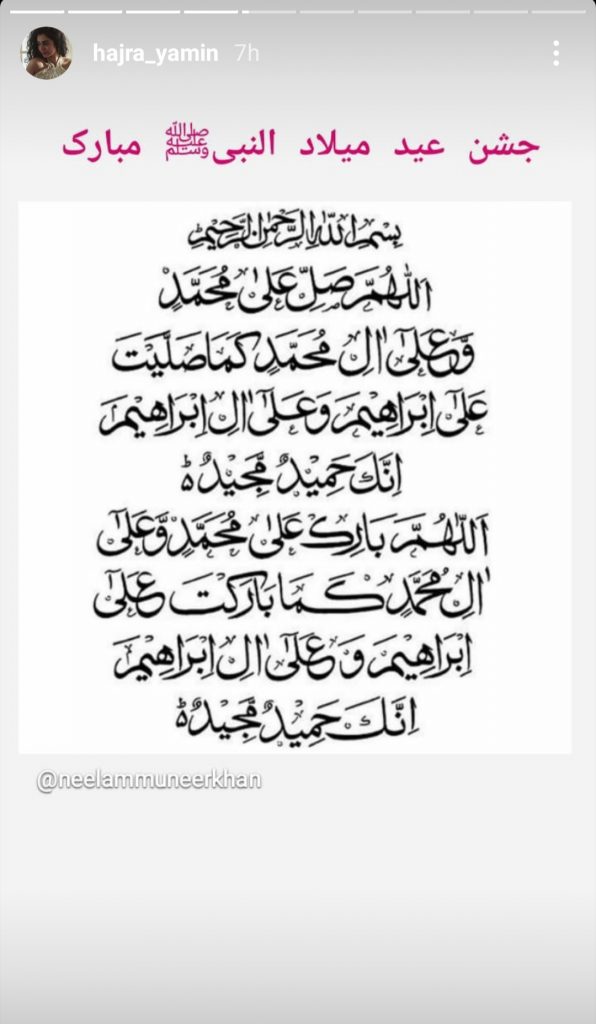 hajra_yamin 7h
جشن عید میلاد النبیﷺ مبارک
بِسْمِ اللهِ الرَّحْمٰنِ الرَّحِيْمِ
اَللّٰهُمَّ صَلِّ عَلٰى مُحَمَّدٍ
وَّعَلٰٓى اٰلِ مُحَمَّدٍ كَمَا صَلَّيْتَ
عَلٰٓى اِبْرَاهِيْمَ وَعَلٰٓى اٰلِ اِبْرَاهِيْمَ
اِنَّكَ حَمِيْدٌ مَّجِيْدٌ ؕ
اَللّٰهُمَّ بَارِكْ عَلٰى مُحَمَّدٍ وَّعَلٰٓى
اٰلِ مُحَمَّدٍ كَمَا بَارَكْتَ عَلٰٓى
اِبْرَاهِيْمَ وَعَلٰٓى اٰلِ اِبْرَاهِيْمَ
اِنَّكَ حَمِيْدٌ مَّجِيْدٌ ؕ
@neelammuneerkhan